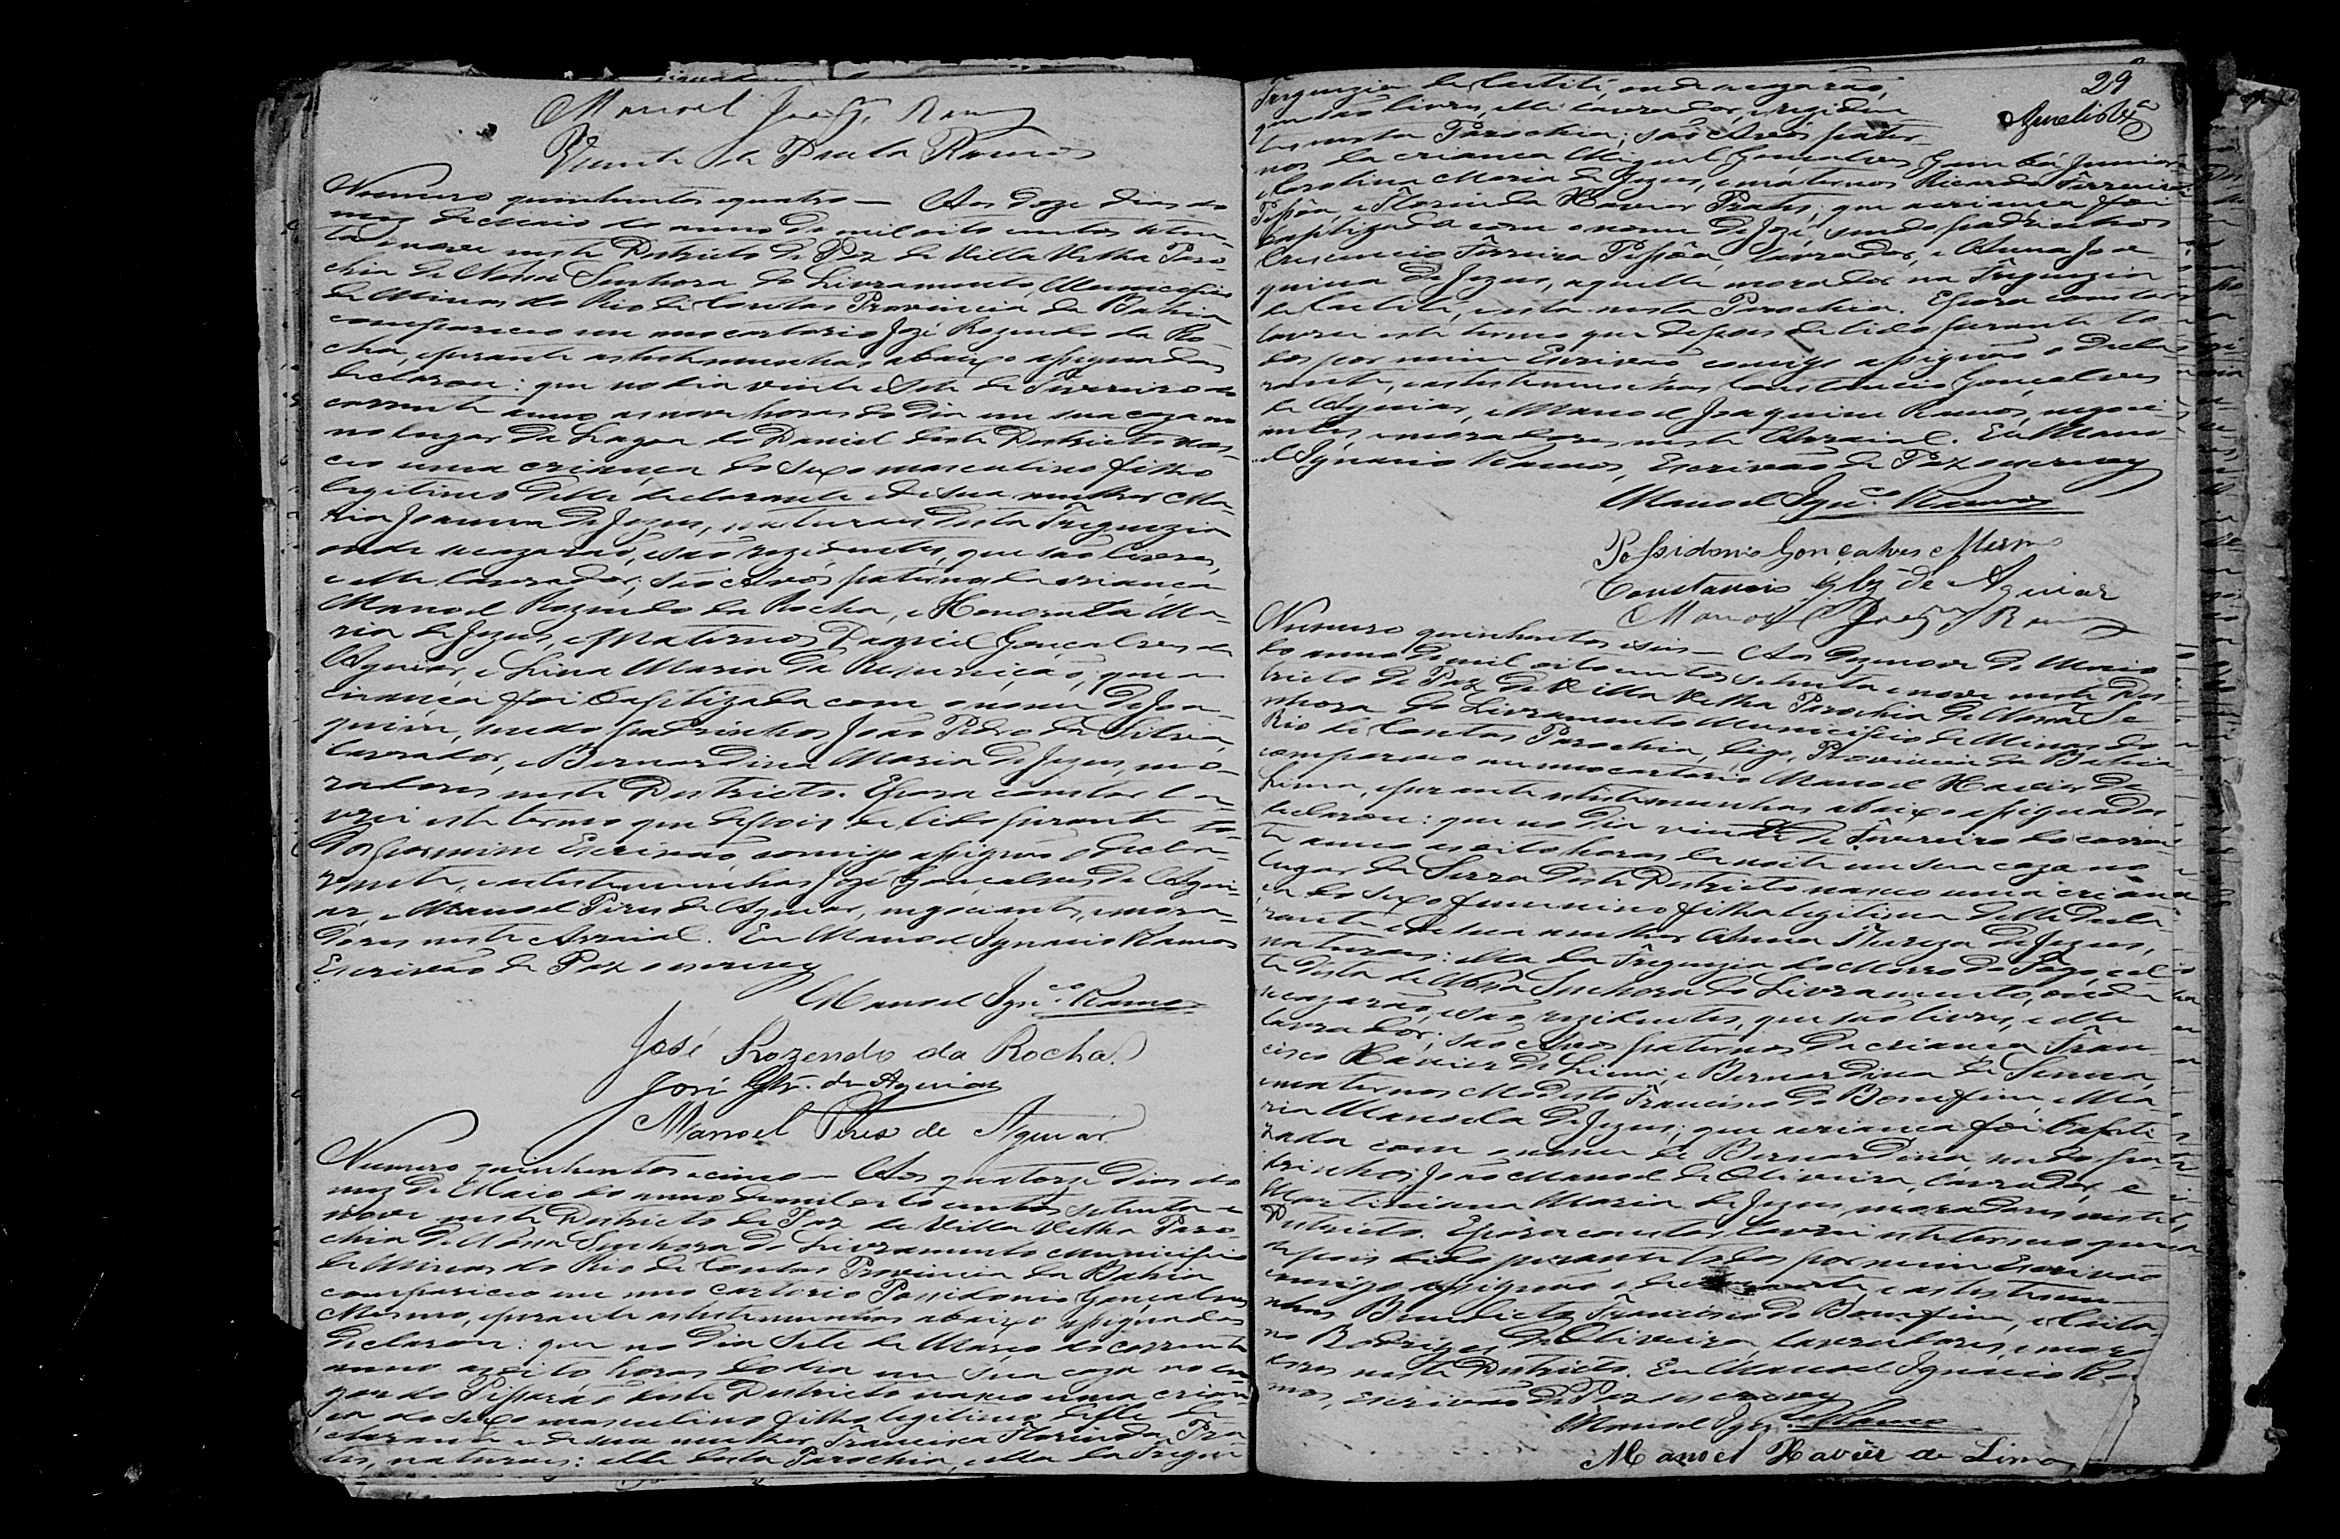 Manoel Joaq.m Ramos
Vicente de Paula Ramos
Numero quinhentos equatro — Aos doze dias do
mez de Maio do anno de mil oito centos seten-
ta e nove neste Districto de Paz de Villa Velha Paro-
chia de Nossa Senhora do Livramento, Municipio
de Minas do Rio de Contas Provincia da Bahia
compareceo em meo cartorio José Rozendo da Ro-
cha, eperante as testemunhas abaixo assignadas
declarou: que no dia vinte e sete de Fevereiro do
corrente anno as nove horas do dia em sua caza
no lugar da Lagoa do Daniel deste Districto nas-
ceo uma criança do sexo masculino filho
legitimo delle declarante e de sua mulher Ma-
ria Joanna de Jezus, naturaes desta Freguezia
onde se cazarão, e são rezidentes, que são livres,
e elle lavrador; são Avós paternos da criança
Manoel Rozendo da Rocha, e Honorata Ma-
ria de Jezus, e Maternos Daniel Gonçalves de
Aguiar, e Lina Maria da Resurreição, que a
criança foi baptizada com o nome de Joa-
quim, sendo padrinhos João Pedro da Silva,
lavrador, e Bernardina Maria de Jezus, mo-
radores neste Districto. Epara constar la-
vrei este termo que depois de lido perante to-
dos por mim Escrivão comigo assignão o decla-
rante, e as testemunhas José Gonçalves de Agui-
ar, e Manoel Pires de Aguiar, negociantes, e mora-
dores neste Arraial. Eu Manoel Ignacio Ramos
Escrivão de Paz o escrevy
Manoel Ign.co Ramos
José Rozendo da Rocha
José Glz. de Aguiar
Manoel Pires de Aguiar
Numero quinhentos e cinco — Aos quatorze dias do
mez de Maio do anno de mil oito centos setenta e
nove neste Districto de Paz de Villa Velha Paro-
chia de Nossa Senhora do Livramento Municipio
de Minas do Rio de Contas Provincia da Bahia
compareceo em meo cartorio Possidonio Gonçalves
Mesmo, eperante as testemunhas abaixo assignadas
declarou: que no dia sete de Março do corrente
anno as oito horas do dia em sua caza no lu-
gar do deste Districto nasceo uma crian-
ça do sexo masculino filho legitimo delle de-
clarante e de sua mulher Francisca Florinda Pra-
tes, naturaes: elle desta Parochia, ella da Fregue-
29
Freguezia de Caetité, onde se cazarão,
que são livres, elle lavrador, e reziden-
tes nesta Parochia; são Avós pater-
nos da criança Miguel Gonçalves Junior
e Carolina Maria de Jezus, e maternos Ricardo Ferreira
Pessôa, e Florinda Xavier Prates, que a criança foi
baptizada com o nome de José, sendo padrinhos
Crescencio Ferreira Pessôa, lavrador, e Anna Joa-
quina de Jezus, aquelle morador na Freguezia
de Caetité, e esta nesta Parochia. Epara constar
lavrei este termo que depois de lido perante to-
dos por mim Escrivão comigo assignão o decla-
rante, e as testemunhas Constancio Gonçalves
de Aguiar, e Manoel Joaquim Ramos, negoci-
antes, e moradores neste Arraial. Eu Mano-
el Ignacio Ramos, Escrivão de Paz o escrevy
Manoel Ign.co Ramos
Possidonio Gonçalves Mesmo
Constancio Glz de Aguiar
Manoel Joaq.m Ramos
Numero quinhentos e seis — Aos dezenove de Maio
do anno de mil oito centos setenta e nove neste Dis-
tricto de Paz de Villa Velha Parochia de Nossa Se-
nhora do Livramento Municipio de Minas do
Rio de Contas Parochia, digo, Provincia da Bahia
compareceo em meo cartorio Manoel Xavier de
Lima, eperante as testemunhas abaixo assignadas
declarou: que no dia vinte de Fevereiro do corren-
te anno as oito horas da noite em sua caza no
lugar da Serra deste Districto nasceo uma crian-
ça do sexo femenino filha legitima delle decla-
rante e de sua mulher Anna Thereza de Jezus,
naturaes: ella da Freguezia do Morro do Fogo, e el-
le desta de Nossa Senhora do Livramento, onde
se cazarão, e são rezidentes, que são livres, e elle
lavrador; são Avós paternos da criança Fran-
cisco Xavier de Lima, e Bernardina de Senna,
e maternos Modesto Francisco do Bomfim, e Ma-
ria Manoela de Jezus; que a criança foi bapti-
zada com o nome de Bernardina sendo pa-
drinhos João Manoel de Oliveira, lavrador, e
Martiniana Maria de Jezus, moradores neste
Districto. Epara constar lavrei este termo que
depois lido perante todos por mim Escrivão
comigo assignão o declarante e as testemu-
nhas Benedicto Francisco do Bomfim, e Caita-
no Rodrigues de Oliveira, lavradores, e mora-
dores neste Districto. Eu Manoel Ignacio Ra-
mos, escrivão de Paz o escrevy
Manoel Ign.co Ramos
Manoel Xavier de Lima